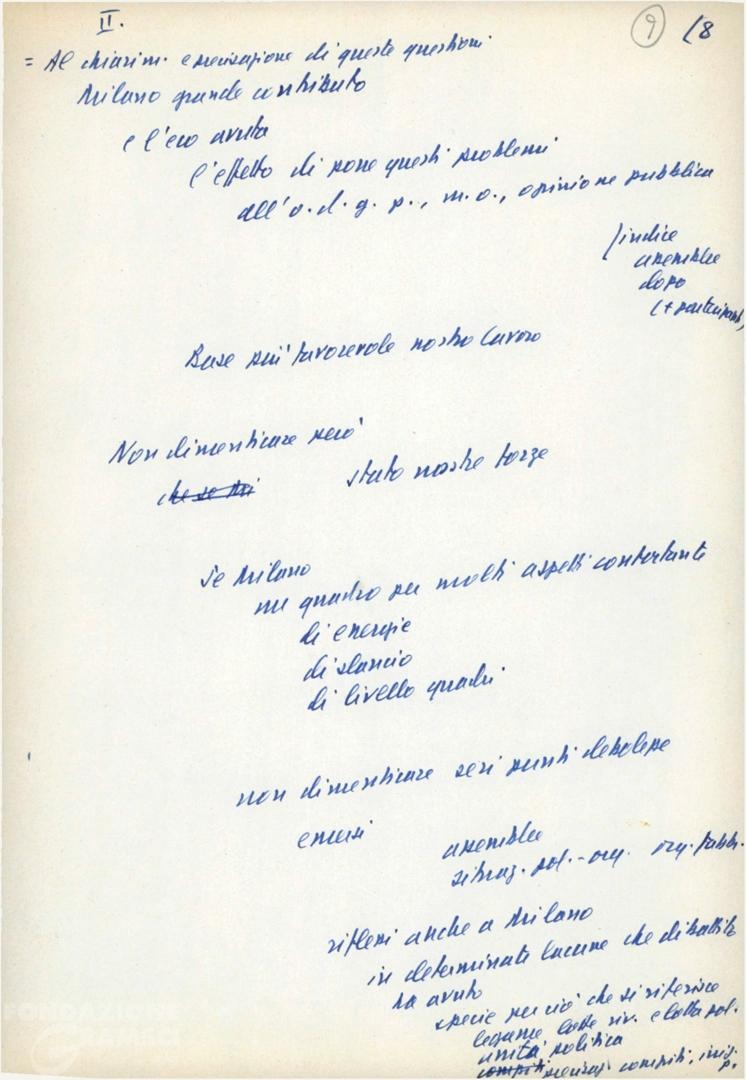 II.
9 /8
= Al chiarim. e precisazione di queste questioni
Milano grande contributo
e l'eco avuta
l'effetto di porre questi problemi
all'o.d.g. p., m.o., opinione pubblica
/indice
assemblee
dopo
(+ partecipanti)
Base più favorevole nostro lavoro
Non dimenticare però
che se Mi
stato nostre forze
Se Milano
un quadro per molti aspetti confortante
di energie
di slancio
di livello quadri
non dimenticare seri punti debolezza
emersi
assemblee
situaz. pol.-org. org. fabbr.
riflessi anche a Milano
in determinate lacune che dibattito
ha avuto
specie per ciò che si riferisce
legame lotte riv. e lotta pol.
unità politica
compiti precisaz. compiti, iniz.
p.
FONDAZIONE
GRAMSCI